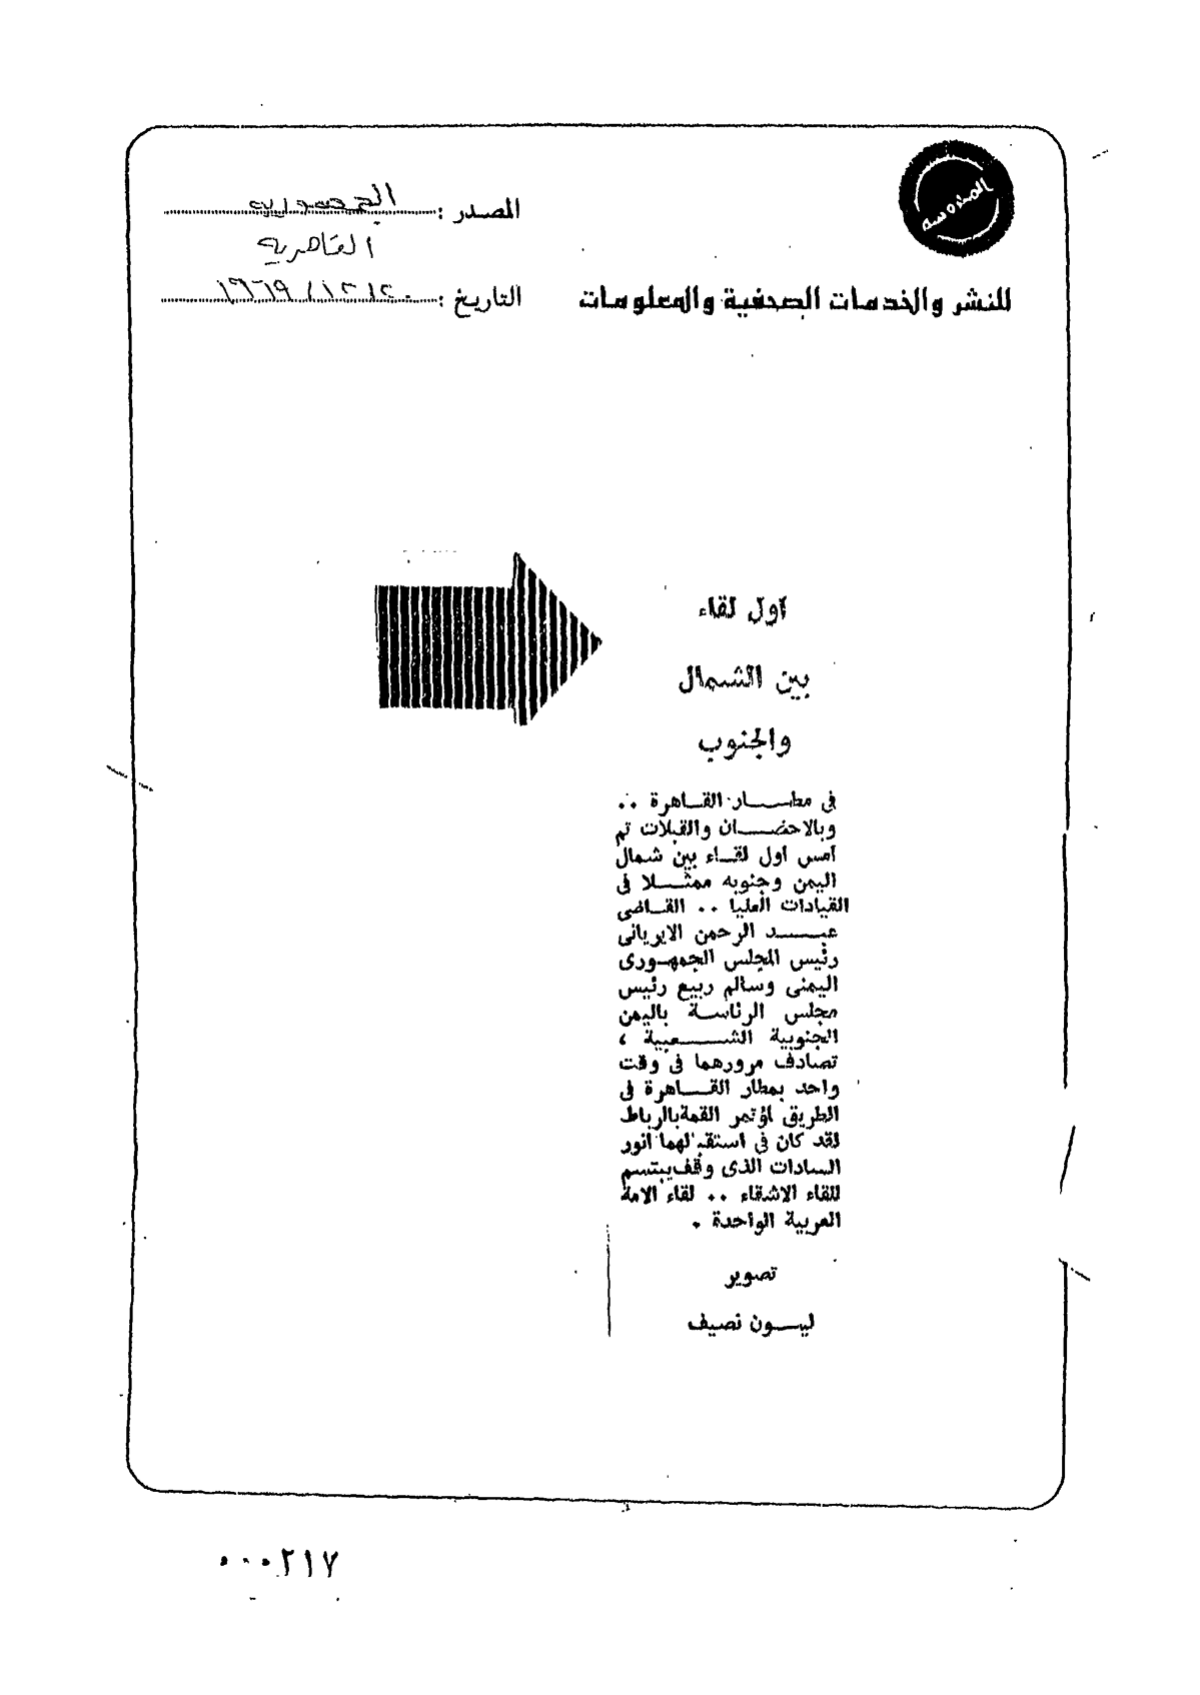 المصدر : الجمهوريه
القاهريه
للنشر والخدمات الصحفية والمعلومات
التاريخ : ٢٠ / ١٢ / ١٩٦٩
أول لقاء
بين الشمال
والجنوب
في مطار القاهرة ..
وبالاحضان والقبلات تم
أمس أول لقاء بين شمال
اليمن وجنوبه ممثلا في
القيادات العليا .. القاضى
عبد الرحمن الايريانى
رئيس المجلس الجمهورى
اليمنى وسالم ربيع رئيس
مجلس الرئاسة باليمن
الجنوبية الشعبية ،
تصادف مرورهما في وقت
واحد بمطار القاهرة في
الطريق لمؤتمر القمة بالرباط
لقد كان في استقبالهما انور
السادات الذى وقف يبتسم
للقاء الاشقاء .. لقاء الامة
العربية الواحدة .
تصوير
ليون نصيف
٠٠٠٢١٧